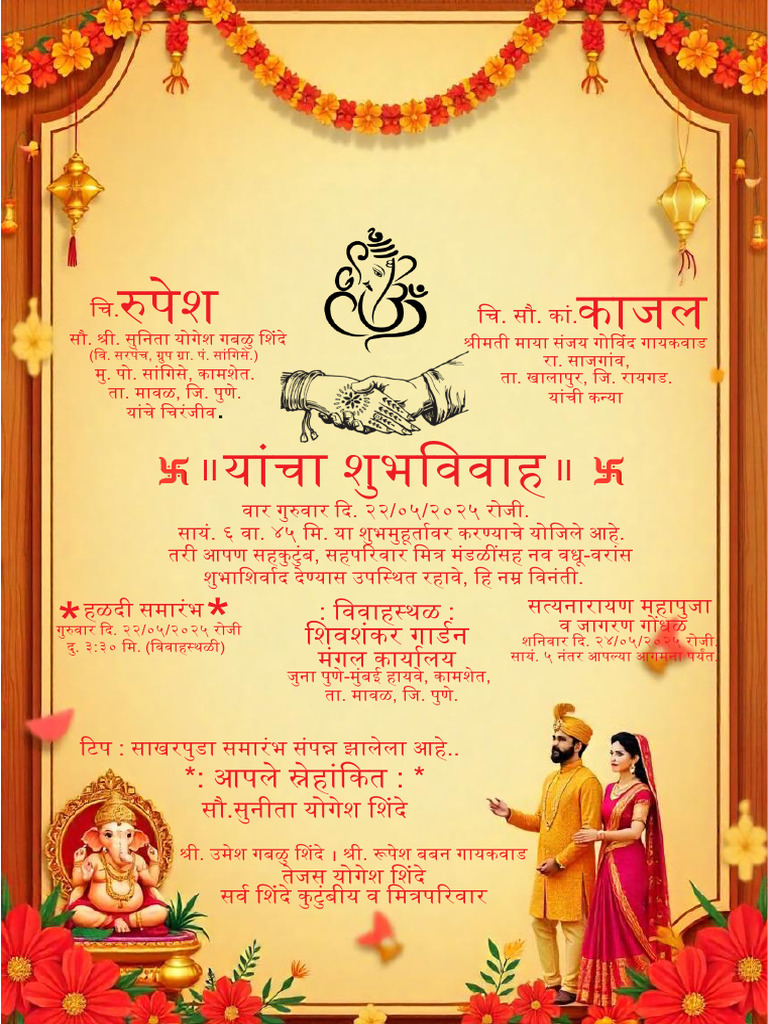 चि.रुपेश
सौ. श्री. सुनिता योगेश गबळु शिंदे
(वि. सरपंच, ग्रुप ग्रा. पं. सांगिसे.)
मु. पो. सांगिसे, कामशेत.
ता. मावळ, जि. पुणे.
यांचे चिरंजीव.
चि. सौ. कां.काजल
श्रीमती माया संजय गोविंद गायकवाड
रा. साजगांव,
ता. खालापुर, जि. रायगड.
यांची कन्या
卐 ॥यांचा शुभविवाह॥ 卐
वार गुरुवार दि. २२/०५/२०२५ रोजी.
सायं. ६ वा. ४५ मि. या शुभमुहूर्तावर करण्याचे योजिले आहे.
तरी आपण सहकुटुंब, सहपरिवार मित्र मंडळींसह नव वधू-वरांस
शुभाशिर्वाद देण्यास उपस्थित रहावे, हि नम्र विनंती.
*हळदी समारंभ*
गुरुवार दि. २२/०५/२०२५ रोजी
दु. ३:३० मि. (विवाहस्थळी)
: विवाहस्थळ :
शिवशंकर गार्डन
मंगल कार्यालय
जुना पुणे-मुंबई हायवे, कामशेत,
ता. मावळ, जि. पुणे.
सत्यनारायण महापुजा
व जागरण गोंधळ
शनिवार दि. २४/०५/२०२५ रोजी.
सायं. ५ नंतर आपल्या आगमना पर्यंत.
टिप : साखरपुडा समारंभ संपन्न झालेला आहे..
*: आपले स्नेहांकित : *
सौ.सुनीता योगेश शिंदे
श्री. उमेश गबळु शिंदे । श्री. रूपेश बबन गायकवाड
तेजस योगेश शिंदे
सर्व शिंदे कुटुंबीय व मित्रपरिवार